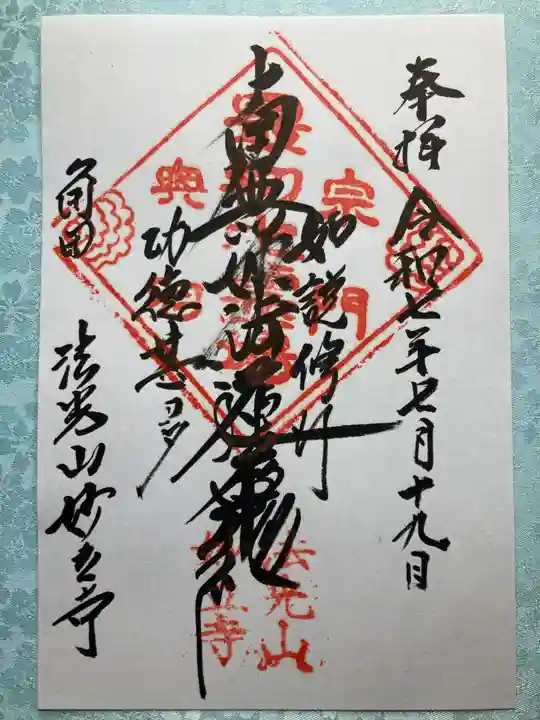 奉拝
令和七年七月十九日
如説修行
南無妙法蓮華経
功徳甚多
角田
法光山妙立寺
宗門
法光山
妙立寺